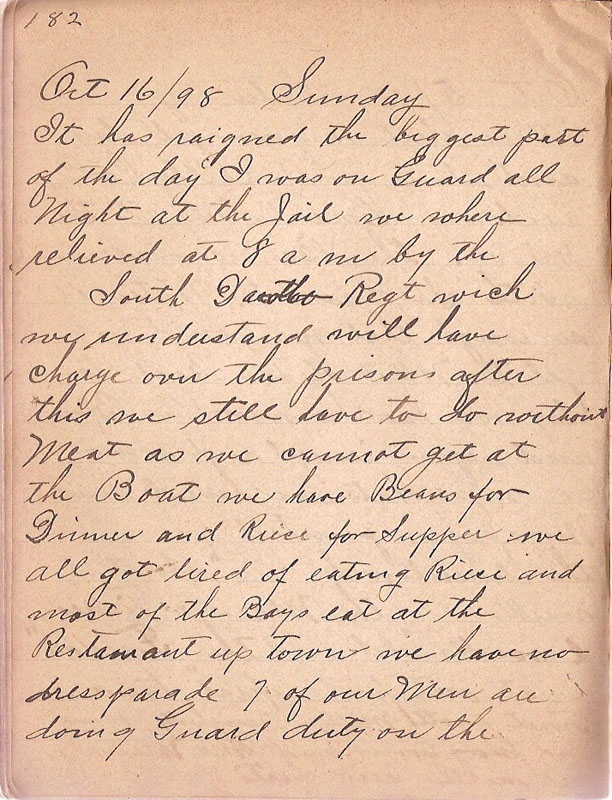 182
Oct 16/98 Sunday
It has raigned the biggest part
of the day I was on Guard all
Night at the Jail we where
relieved at 8 a m by the
South Dacotto Regt wich
we understand will have
charge over the prisons after
this we still have to do without
Meat as we cannot get at
the Boat we have Beans for
Dinner and Riese for Supper we
all got tired of eating Riese and
most of the Boys eat at the
Restaurant up town we have no
dressparade 7 of our Men are
doing Guard duty on the